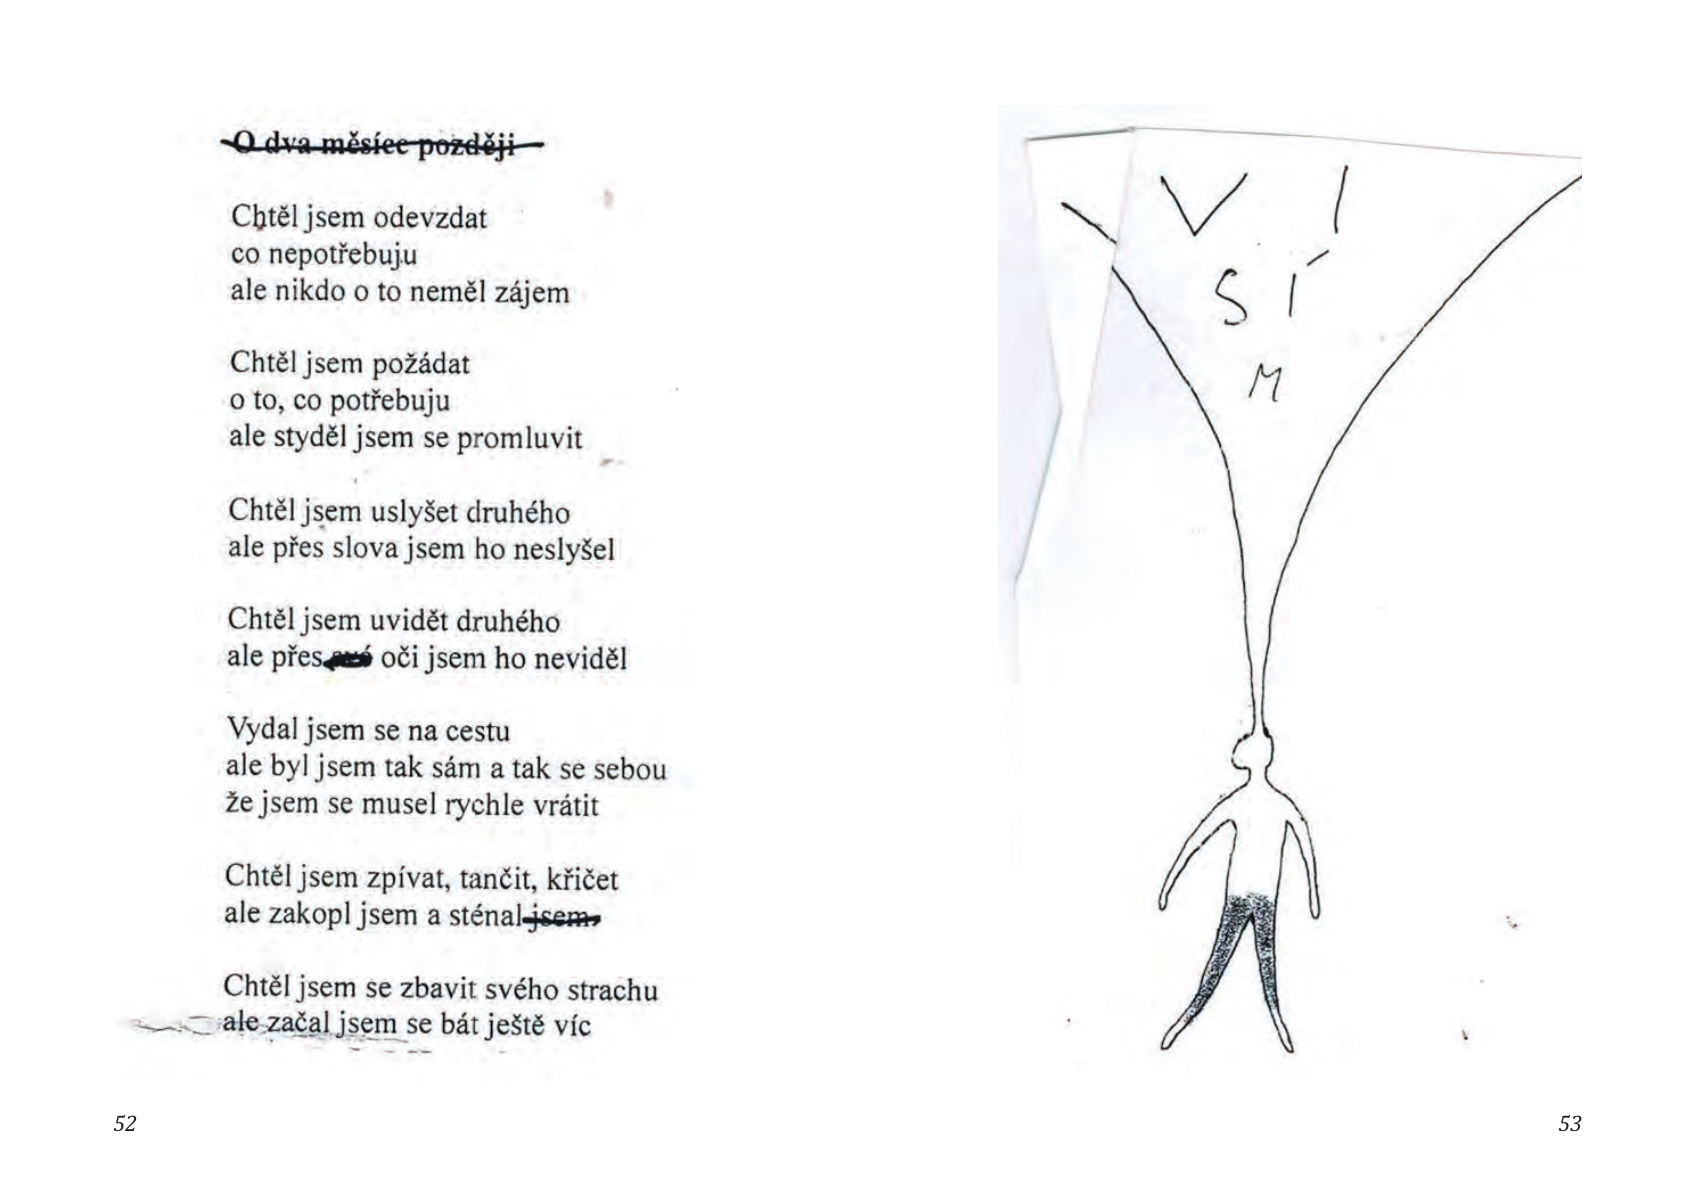 O dva měsíce později
Chtěl jsem odevzdat
co nepotřebuju
ale nikdo o to neměl zájem
Chtěl jsem požádat
o to, co potřebuju
ale styděl jsem se promluvit
Chtěl jsem uslyšet druhého
ale přes slova jsem ho neslyšel
Chtěl jsem uvidět druhého
ale přes oči jsem ho neviděl
Vydal jsem se na cestu
ale byl jsem tak sám a tak se sebou
že jsem se musel rychle vrátit
Chtěl jsem zpívat, tančit, křičet
ale zakopl jsem a sténal jsem,
Chtěl jsem se zbavit svého strachu
ale začal jsem se bát ještě víc
52
V I
S Í
M
53